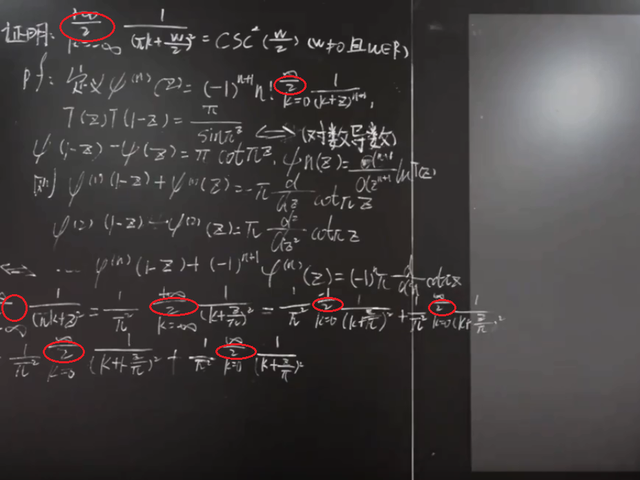 证明: \sum_{k=-\infty}^{+\infty} \frac{1}{(πk+\frac{w}{2})^2} = CSC^2(\frac{w}{2}) (w≠0且w∈R)
pf: 定义 ψ^{(n)}(z)=(-1)^{n+1} n! \sum_{k=0}^{∞} \frac{1}{(k+z)^{n+1}},
T(z)T(1-z)=\frac{π}{sinπz} ⟺ (对数导数)
ψ(1-z)-ψ(z)=π cotπz. ψ^{n}(z)=\frac{d^{n+1}}{dz^{n+1}} lnT(z)
则 ψ^{(1)}(1-z)+ψ^{(1)}(z)=-π\frac{d}{dz} cotπz
ψ^{(2)}(1-z)-ψ^{(2)}(z)=π\frac{d^2}{dz^2} cotπz
⟺ ... ψ^{(n)}(1-z)+(-1)^{n+1}ψ^{(n)}(z)=(-1)^nπ\frac{d}{d^n} cotπz
\frac{1}{(πk+z)^2} = \frac{1}{π^2} \sum_{k=-∞}^{+∞} \frac{1}{(k+\frac{z}{π})^2} = \frac{1}{π^2} \sum_{k=0}^{-1} \frac{1}{(k+\frac{z}{π})^2} + \frac{1}{π^2} \sum_{k=0}^{∞} \frac{1}{(k+\frac{z}{π})^2}
\frac{1}{π^2} \sum_{k=0}^{∞} \frac{1}{(k+1-\frac{z}{π})^2} + \frac{1}{π^2} \sum_{k=0}^{∞} \frac{1}{(k+\frac{z}{π})^2}